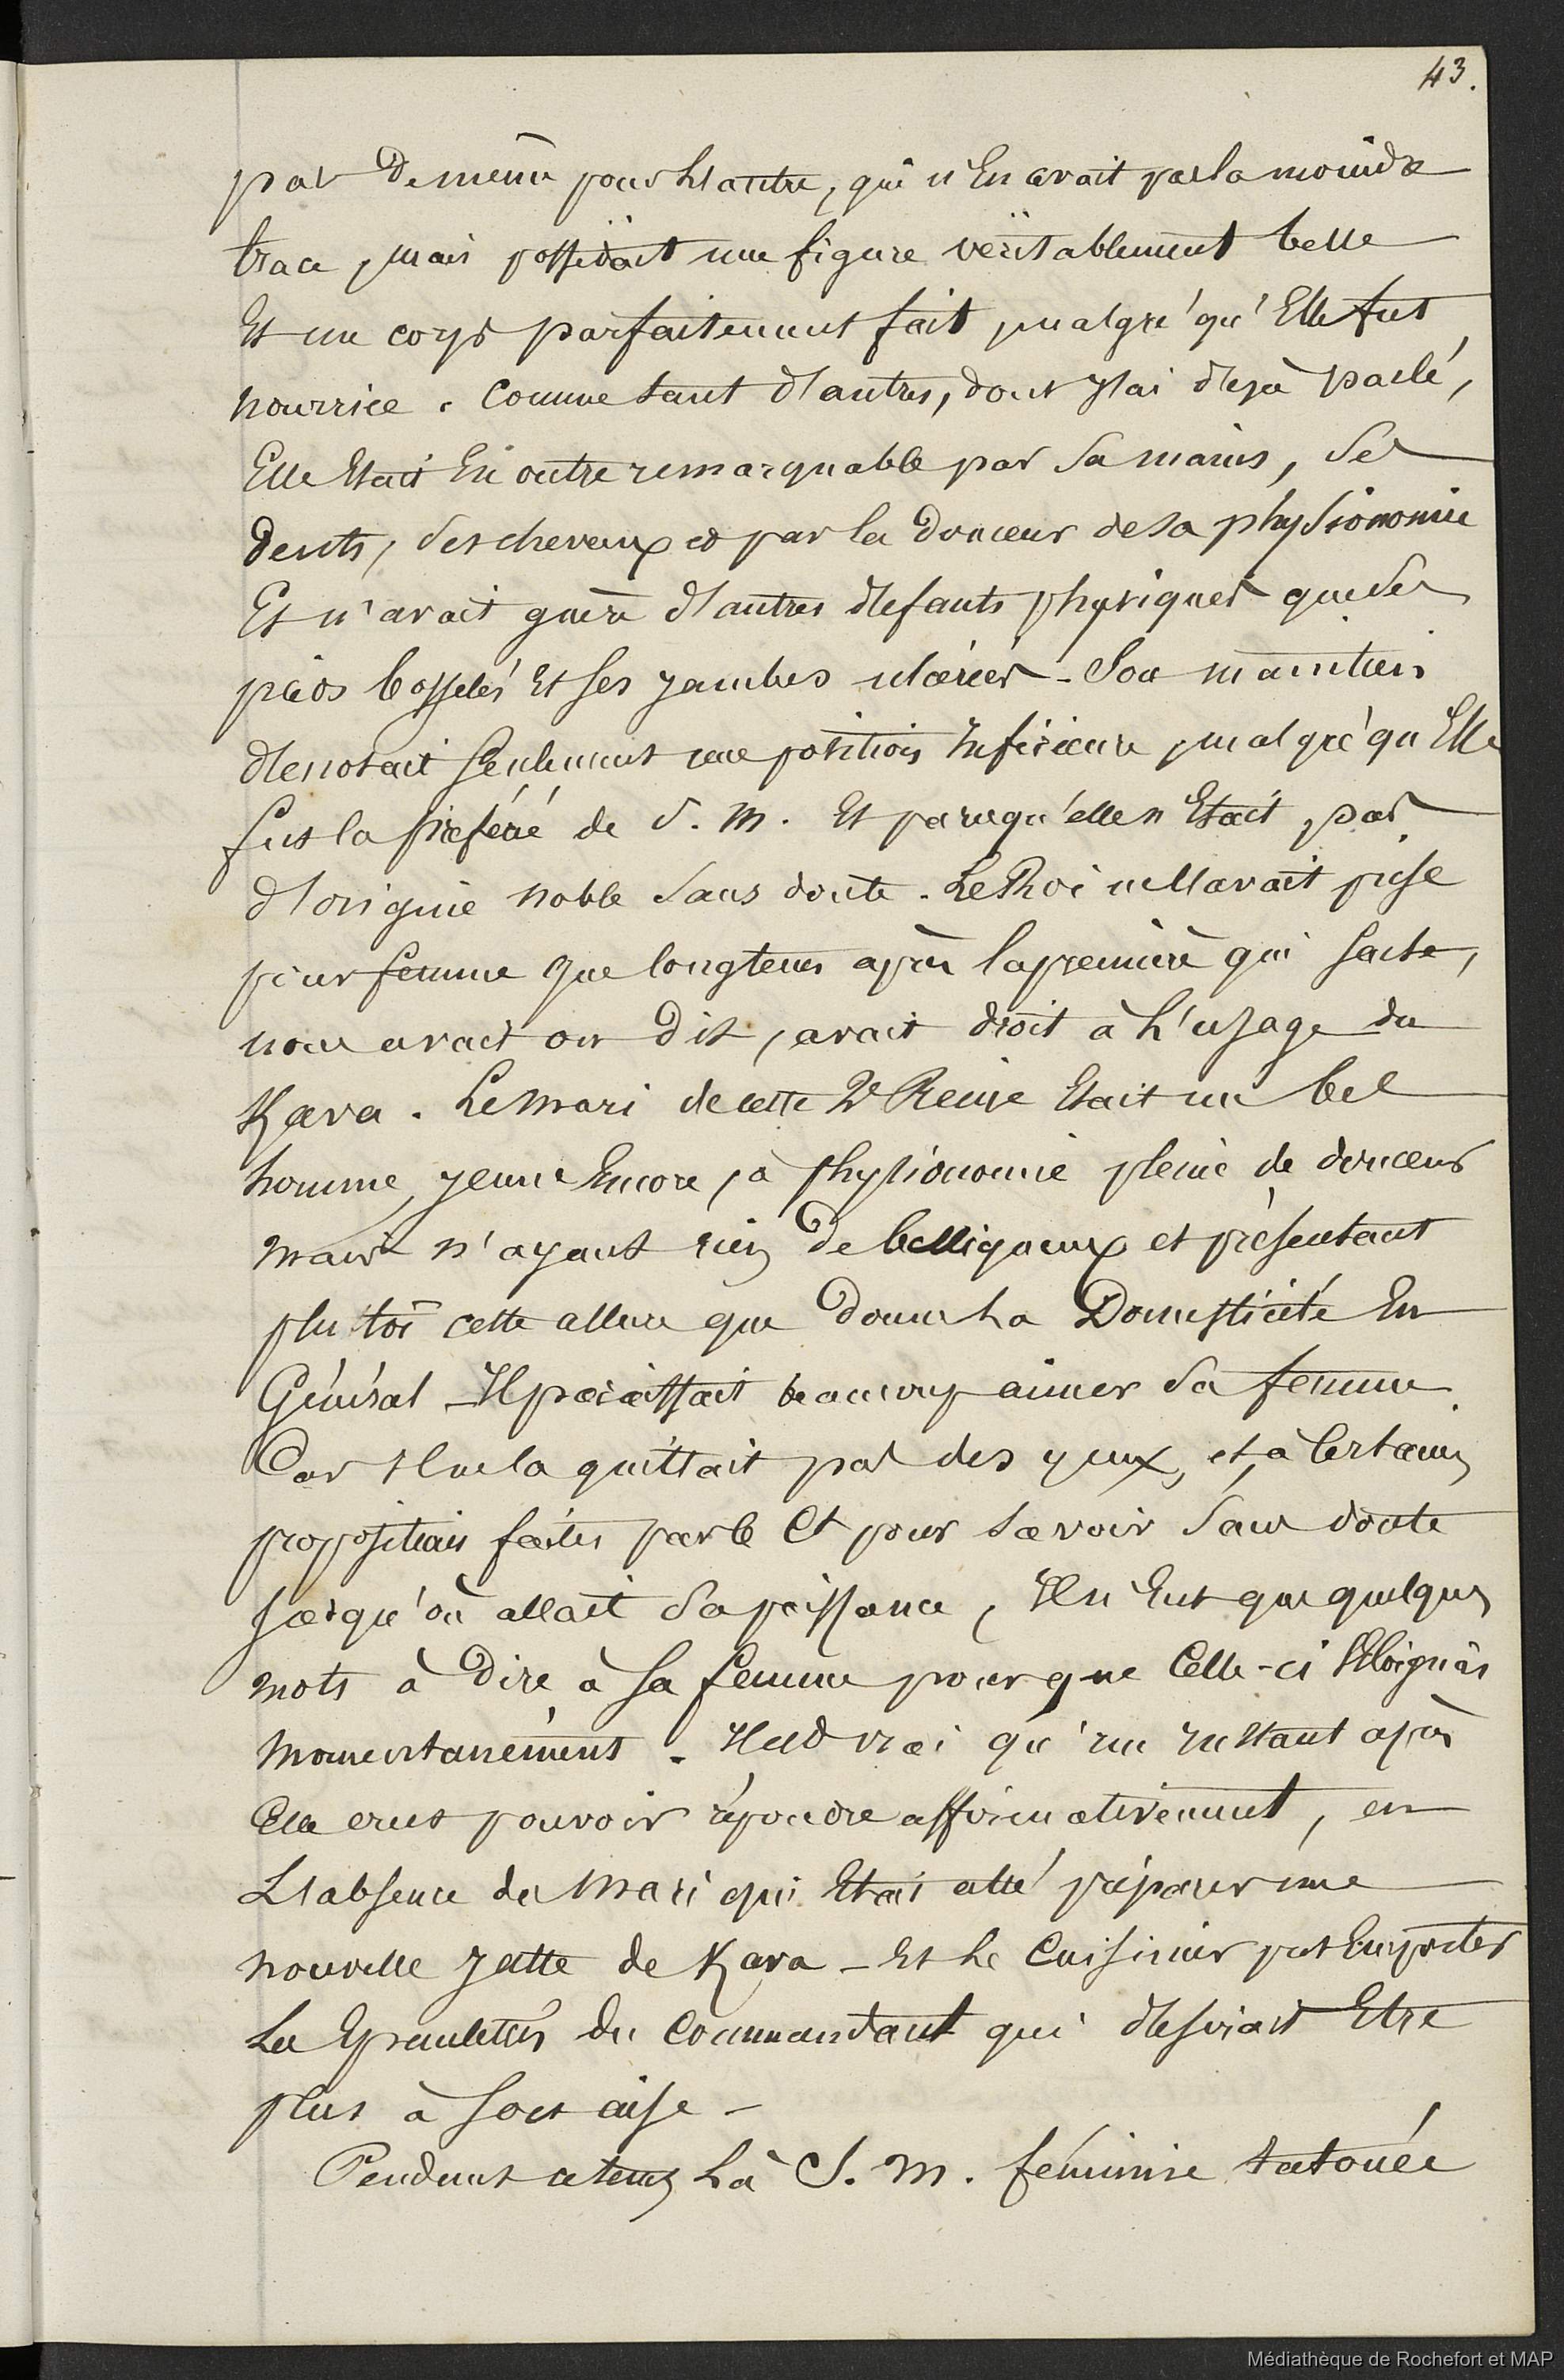 43.
pas de même pour l'autre, qui n'en avait pas la moindre
trace, mais possédait une figure véritablement belle
et un corps parfaitement fait, malgré qu'elle fut
nourrice. Comme tant d'autres, dont j'ai déjà parlé,
Elle était en outre remarquable par sa mains, ses
dents, ses cheveux et par la douceur de sa physionomie
Et n'avait guère d'autres défauts physiques que ses
pieds bosselés et ses jambes ulcérées - Son maintien
dénotait seulement une position inférieure, malgré qu'Elle
fut la préférée de S. M. Et parcequ'elle n'était pas
d'origine noble sans doute. Le Roi ne l'avait prise
pour femme que longtems après la première qui seule,
nous avait on dit, avait droit à l'usage du
Kava. Le mari de cette 2e Reine était un bel
homme, jeune encore, à physionomie pleine de douceur
mais n'ayant rien de belliqueux et présentant
plutôt cette allure que donne la Domesticité en
Général - Il paraissait beaucoup aimer sa femme
Car il ne la quittait pas des yeux, et, à certaines
propositions faites par le Ct pour savoir sans doute
jusqu'où allait sa puissance, Il n'eut que quelques
mots à dire à sa femme pour que Celle-ci s'éloignât
momentanément. Il est vrai qu'un instant après
Elle crut pouvoir répondre affirmativement, en
L'absence du mari qui était allé préparer une
nouvelle jatte de Kava - Et le Cuisinier put emporter
Les Epaulettes du Commandant qui désirait Etre
plus à son aise -
Pendant ce tems là S. M. féminine tatouée
Médiathèque de Rochefort et MAP